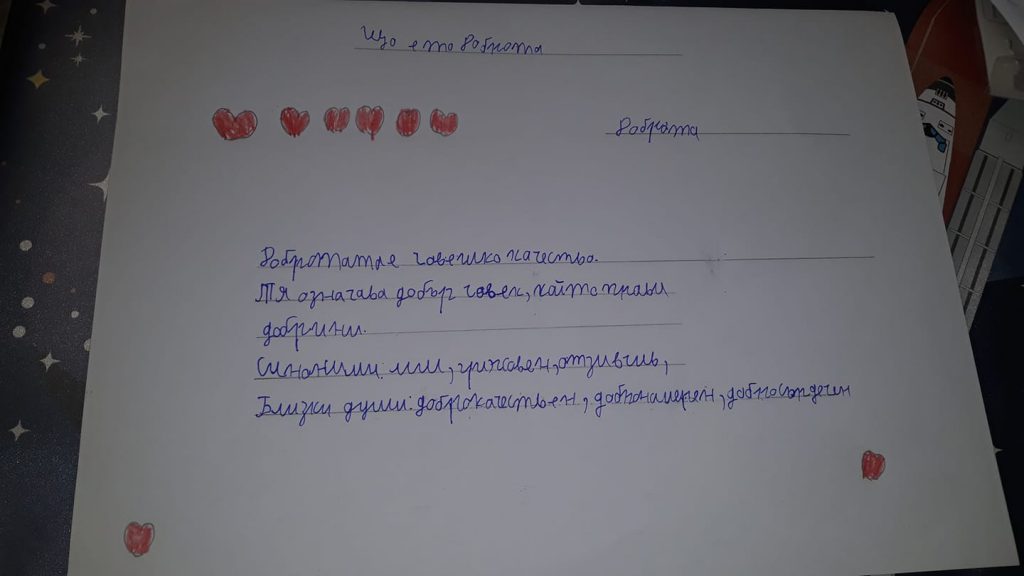 Що е то доброта
доброта
Добротата е човешко качество.
Тя означава добър човек, който прави
добрини.
Синоними: мил, грижовен, отзивчив,
Близки думи: доброкачествен, добронамерен, добросърдечен